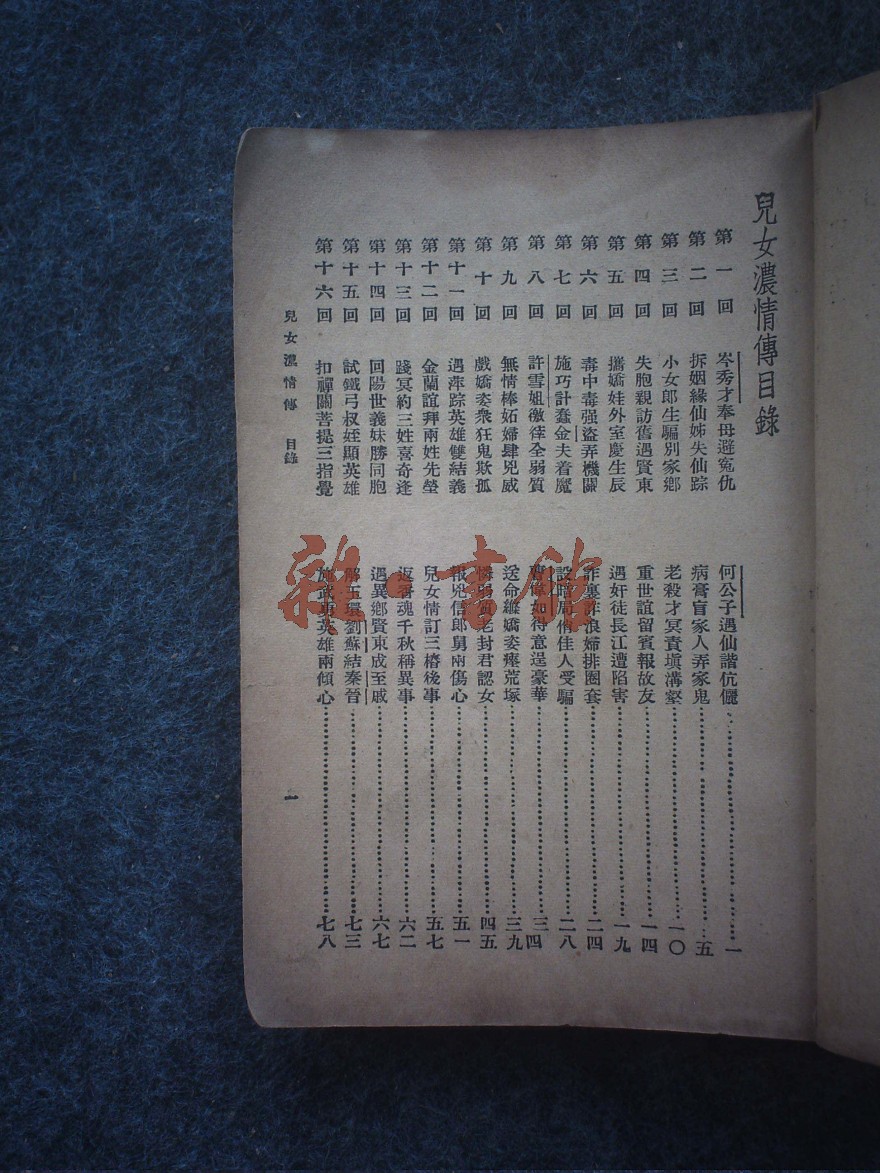 兒女濃情傳目錄
第一回 岑秀才奉母避寃仇 何公子遇仙諧伉儷 一
第二回 拆姻緣仙姊失仙踪 病膏肓家人弄家鬼 五
第三回 小女郎生騙別家鄉 老殺才冥責塡溝壑 一〇
第四回 失胞親訪舊遇賢東 重世誼留賓報故友 一四
第五回 攜嬌娃外室慶生辰 遇奸徒長江遭陷害 一九
第六回 毒中毒强盜弄機關 詐裏詐浪婦排圈套 二四
第七回 施巧計蠢金夫着魔 設暗局俏佳人受騙 二八
第八回 許雪姐徼倖全弱質 曹偉如得意逞豪華 三四
第九回 無情棒妬婦肆兇威 送命縧嬌姿瘞荒塚 三九
第十回 戲嬌姿衆狂鬼欺孤 憐弱質老封君認女 四五
第十一回 遇萍踪英雄雙結義 報兇信郎舅兩傷心 五一
第十二回 金蘭誼拜兩姓先塋 兒女情訂三樁後事 五七
第十三回 踐冥約三姓喜奇逢 返香魂千秋稱異事 六二
第十四回 回陽世義妹勝同胞 遇異鄉賢東成至戚 六七
第十五回 試鐵弓叔姪顯英雄 解玉環劉蘇結秦晉 七三
第十六回 扣禪關菩提三指覺 施武勇英雄兩傾心 七八
兒女濃情傳 目錄 一
雜·書館